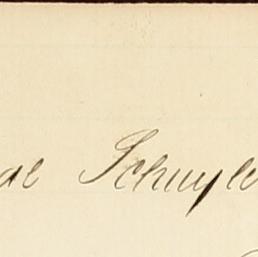 al Schuyle